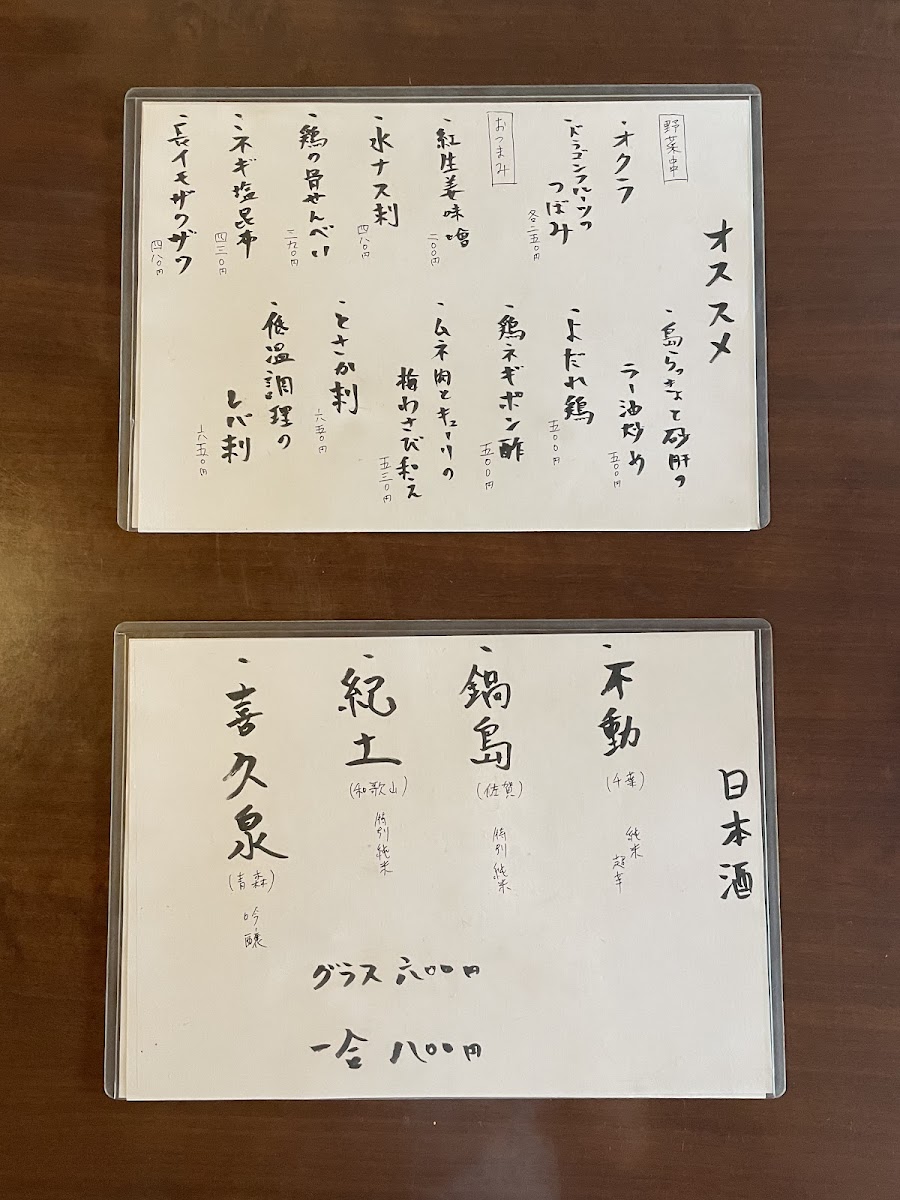 オススメ
野菜串
・オクラ
・ドラゴンフルーツの
つぼみ
各二五〇円
おつまみ
・紅生姜味噌
二〇〇円
・水ナス刺
四八〇円
・鶏の骨せんべい
三九〇円
・ネギ塩昆布
四三〇円
・長イモザクザク
四八〇円
・島らっきょと砂肝の
ラー油炒め
五〇〇円
・よだれ鶏
五五〇円
・鶏ネギポン酢
五〇〇円
・ムネ肉とキューリの
梅わさび和え
五三〇円
・とさか刺
六五〇円
・低温調理の
レバ刺
六五〇円
日本酒
・不動
(千葉)
純米
超辛
・鍋島
(佐賀)
特別純米
・紀土
(和歌山)
特別純米
・喜久泉
(青森)
吟醸
グラス 六〇〇円
一合 八〇〇円